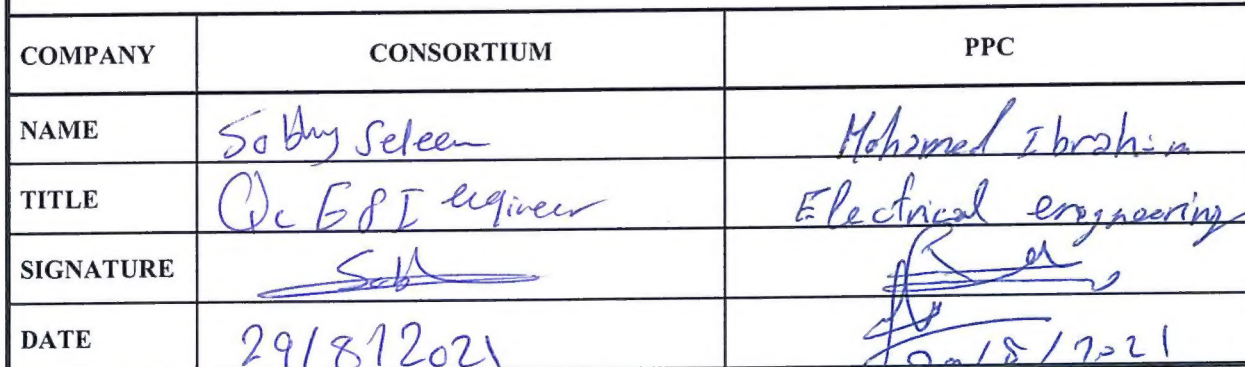 COMPANY CONSORTIUM PPC
NAME Sobhy Seleem Mohamed Ibrahim
TITLE Qc E&I engineer Electrical engineering
SIGNATURE
DATE 29/8/2021 /8/2021